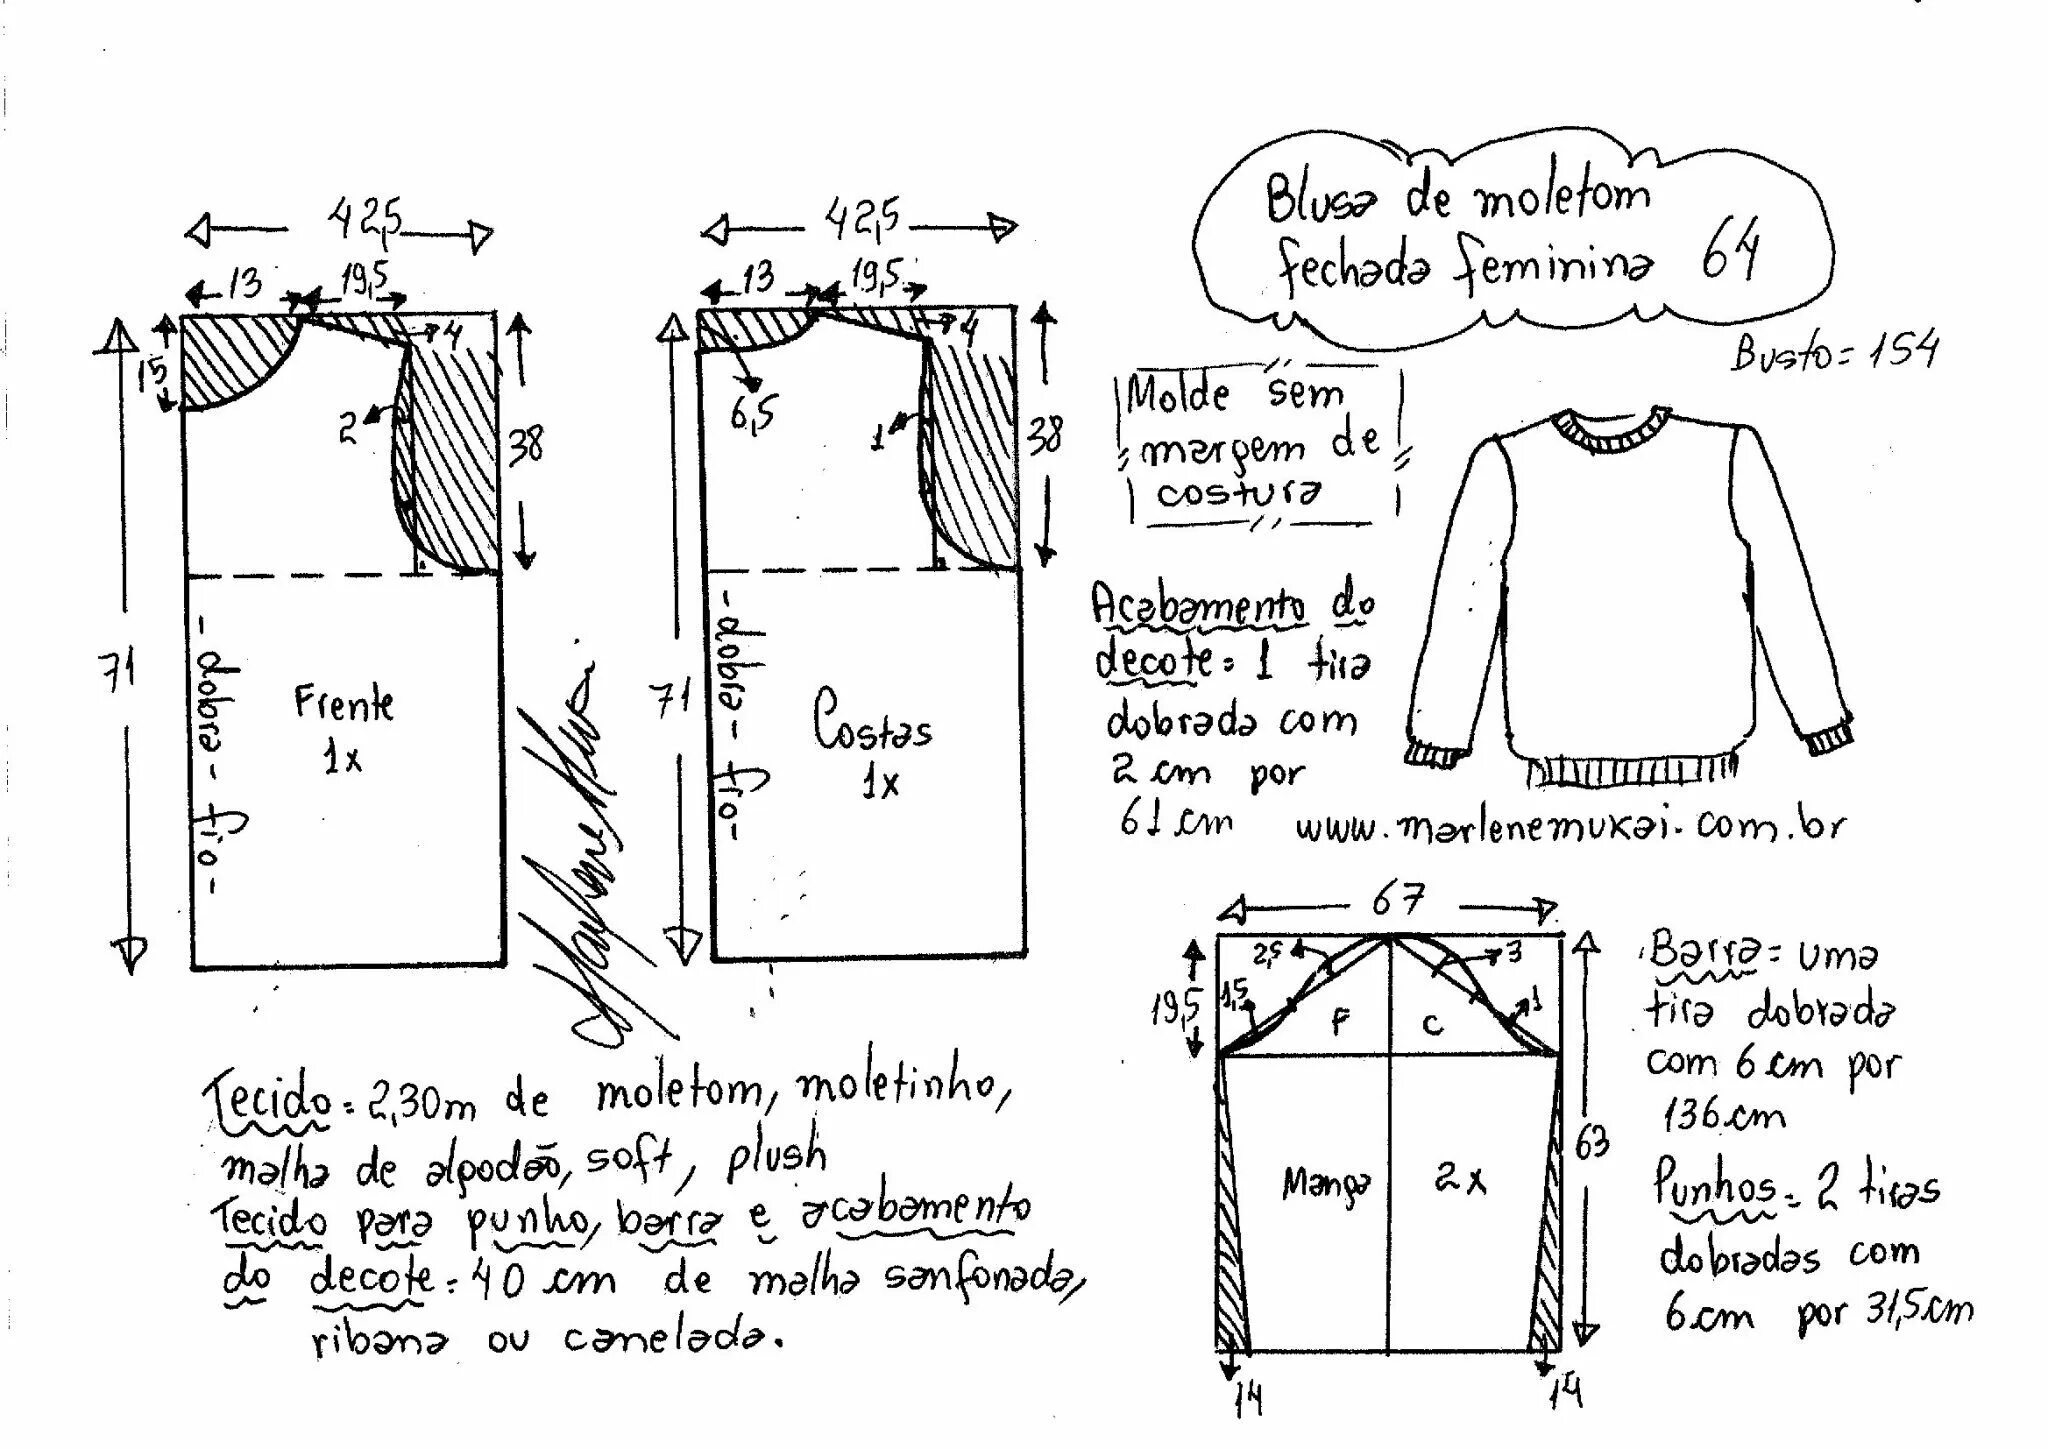 Blusa de moletom
fechada feminina 64
Busto = 154
42,5
13
19,5
4
15
2
38
71
- dobra - fio -
Frente
1x
42,5
13
19,5
4
6,5
1
38
71
- dobra - fio -
Costas
1x
Molde sem
margem de
costura
Acabamento do
decote = 1 tira
dobrada com
2 cm por
61 cm
www.marlenemukai.com.br
67
19,5
2,5
3
1,5
1
F
C
63
Manga
2x
14
14
Barra = uma
tira dobrada
com 6 cm por
136 cm
Punhos = 2 tiras
dobradas com
6 cm por 31,5 cm
Marlene Mukai
Tecido = 2,30m de moletom, moletinho,
malha de algodão, soft, plush
Tecido para punho, barra e acabamento
do decote = 40 cm de malha sanfonada,
ribana ou canelada.